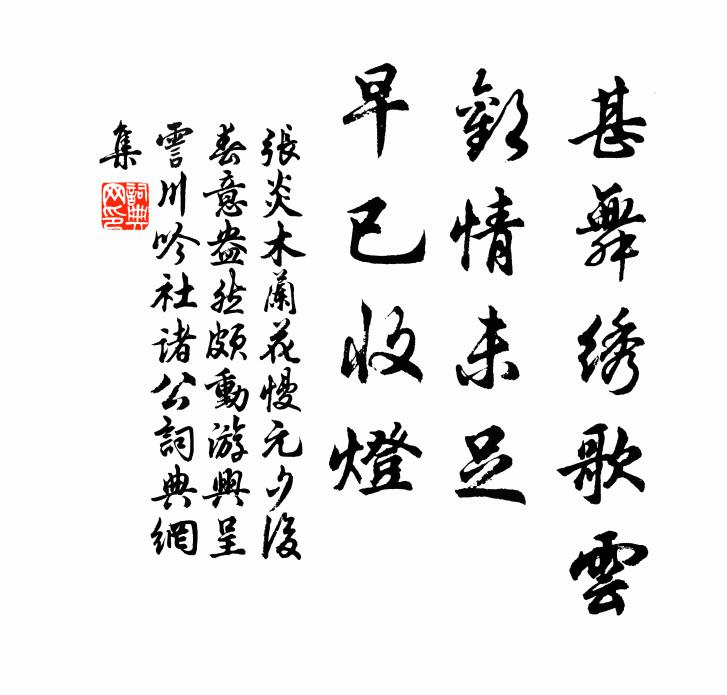 甚舞绣歌雲
歡情未足
早已收燈
張炎木蘭花慢元夕後
春意盎然頗動游興呈
霅川吟社諸公詞典網
集
詞典网印